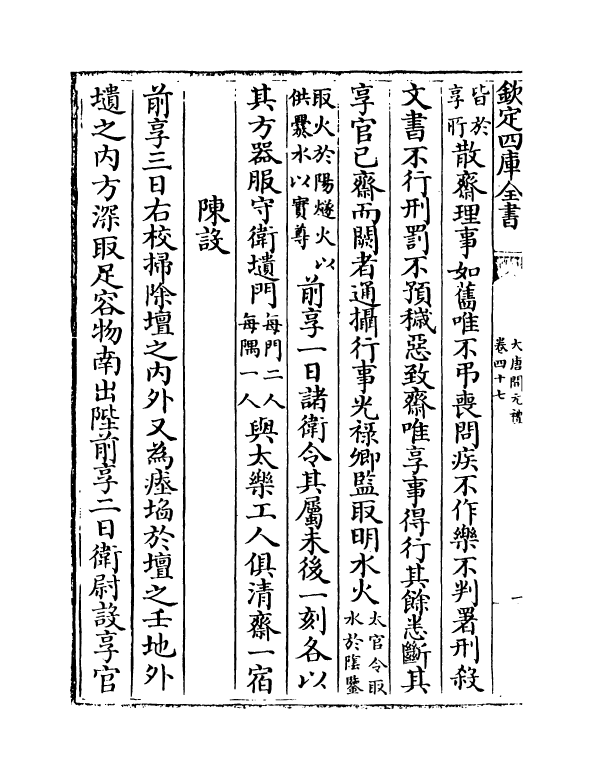 欽定四庫全書
大唐開元禮
卷四十七
一
皆於享所散齋理事如舊唯不弔喪問疾不作樂不判署刑殺
文書不行刑罰不預穢惡致齋唯享事得行其餘悉斷其
享官已齋而闕者通攝行事光祿卿監取明水火太官令取水於陰鑒
取火於陽燧火以供爨水以實尊前享一日諸衛令其屬未後一刻各以
其方器服守衛壝門每門二人每隅一人與太樂工人俱清齋一宿
陳設
前享三日右校掃除壇之內外又為瘞埳於壇之壬地外
壝之內方深取足容物南出陛前享二日衛尉設享官